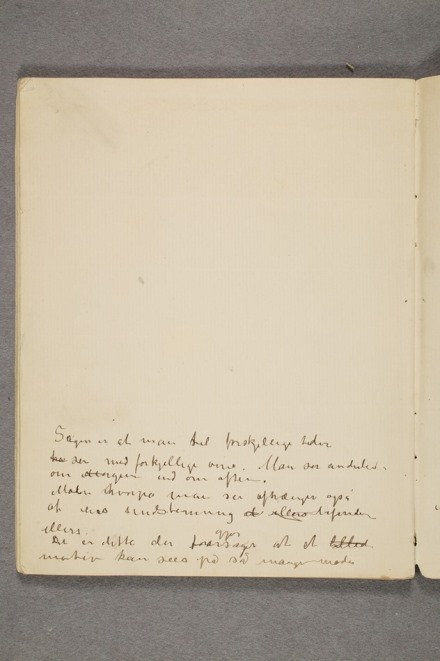 Sagen er at man til forskjellige tider
ser med forskjellige øine. Man ser anderledes
om morgen end om aften.
Måden hvorpå man ser afhænger også
af ens sindsstemning
ellers.
De er dette der gjør at et billed
motiv kan sees på så mange måder